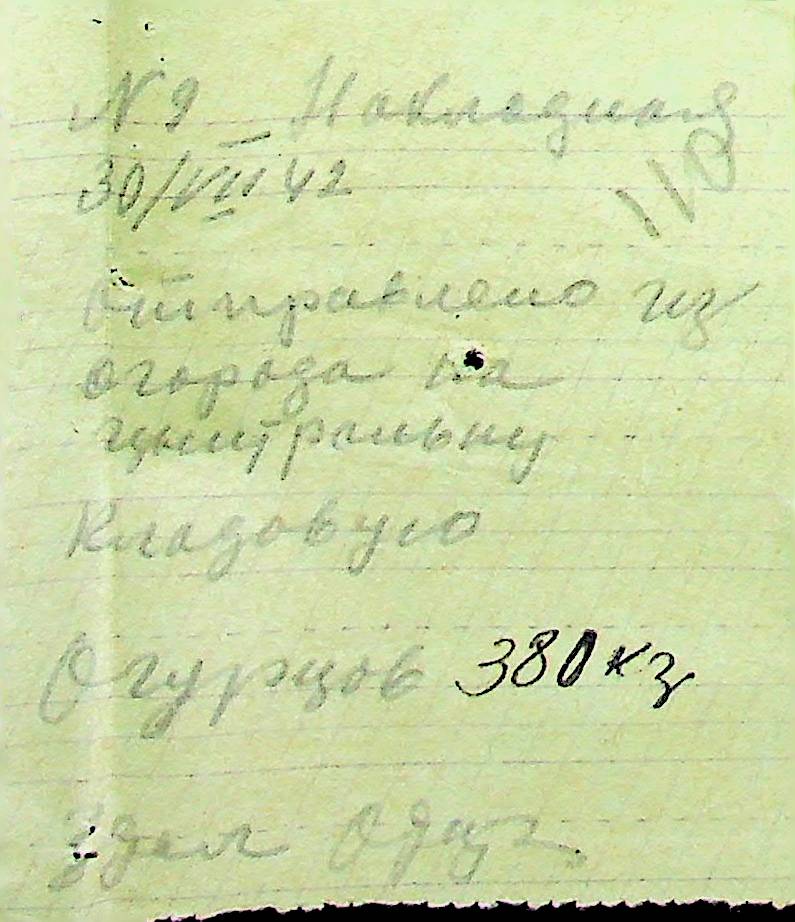 N 9 Накладная
30/VII 42
110
отправлено из
огорода на
цынтральну
Кладовую
Огурцов 380 кг
Здал